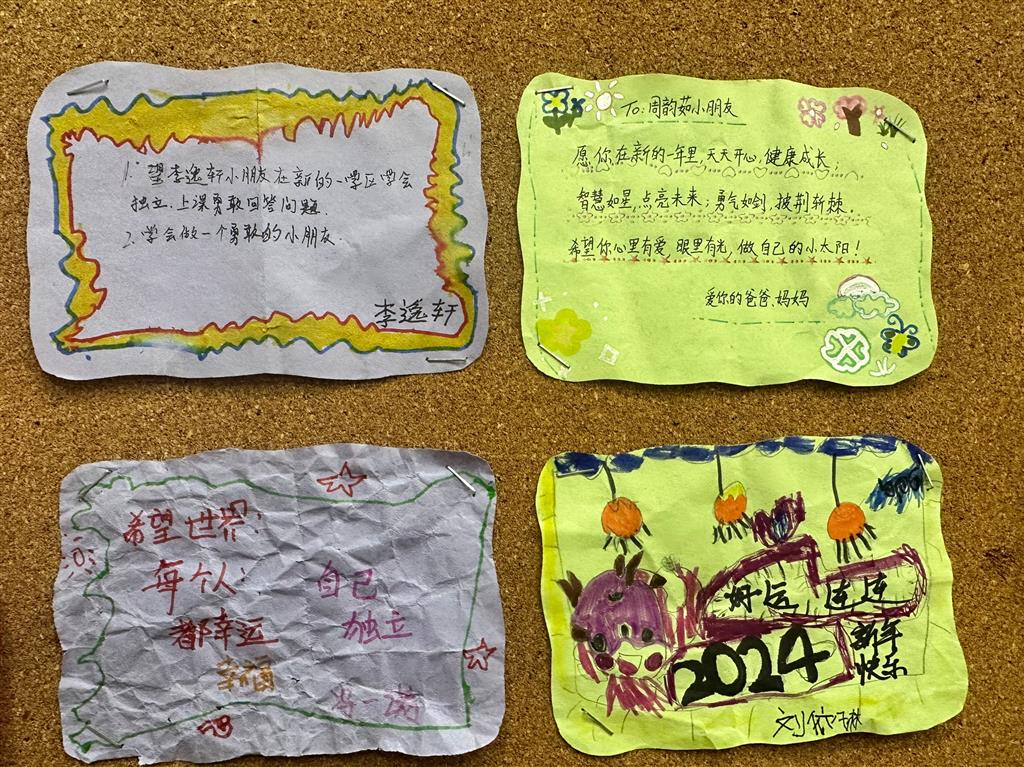 1. 望李逸轩小朋友在新的一学区学会
独立.上课勇敢回答问题.
2.学会做一个勇敢的小朋友.
李逸轩
To:周韵茹小朋友
愿你在新的一年里,天天开心,健康成长;
智慧如星,点亮未来;勇气如剑,披荆斩棘.
希望你心里有爱,眼里有光,做自己的小太阳!
爱你的爸爸.妈妈
希望世界:
每个人:
都幸运
幸福
自己
独立
好运 连连
2024
新年
快乐